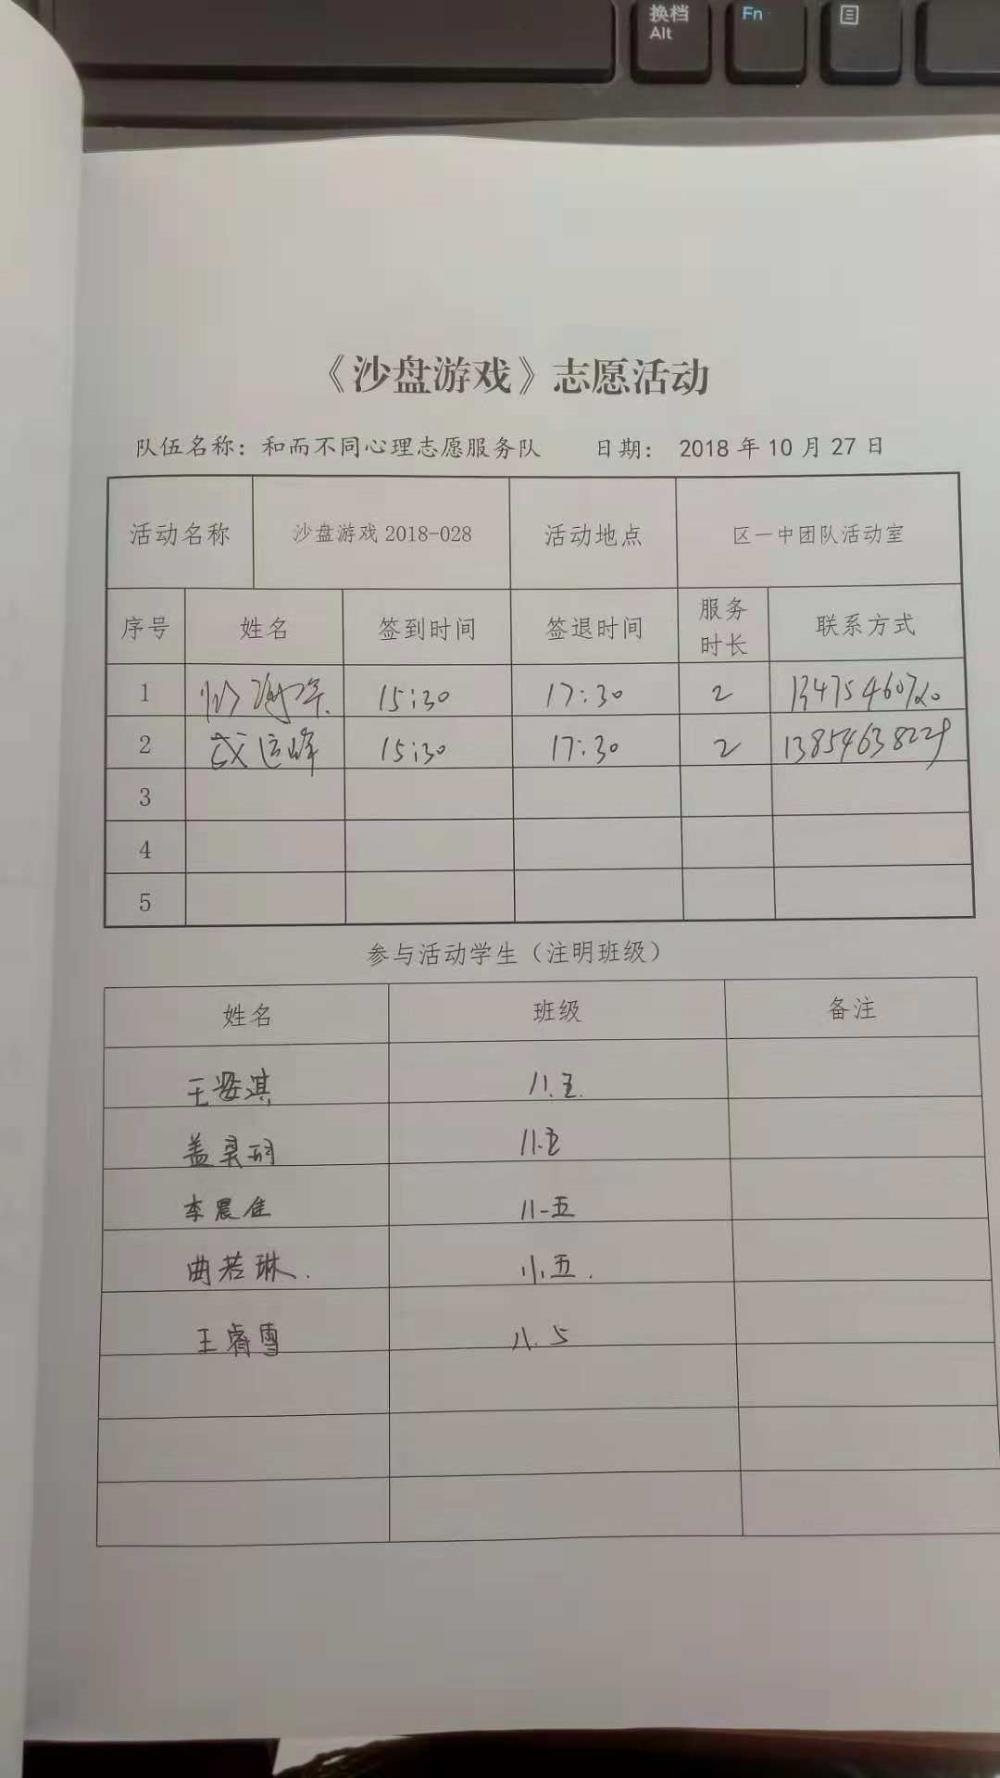 换档
Alt
Fn
《沙盘游戏》志愿活动
队伍名称：和而不同心理志愿服务队 日期： 2018 年 10 月 27 日
活动名称 沙盘游戏 2018-028 活动地点 区一中团队活动室
序号 姓名 签到时间 签退时间 服务时长 联系方式
1 15:30 17:30 2
2 15:30 17:30 2 13854638229
3
4
5
参与活动学生（注明班级）
姓名 班级 备注
王 淇 八.五.
盖 八.五
李晨佳 八-五
曲若琳. 八.五.
王睿雪 八.5